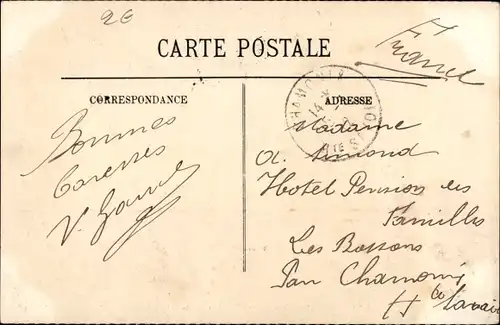 2€
CARTE POSTALE
France
CORRESPONDANCE
ADRESSE
CHAMONIX
14
HTE SAVOIE
Bonnes
Caresses
V.
Madame
A. Simond
Hotel Pension des
Familles
Les Bossons
Par Chamonix
Hte Savoie